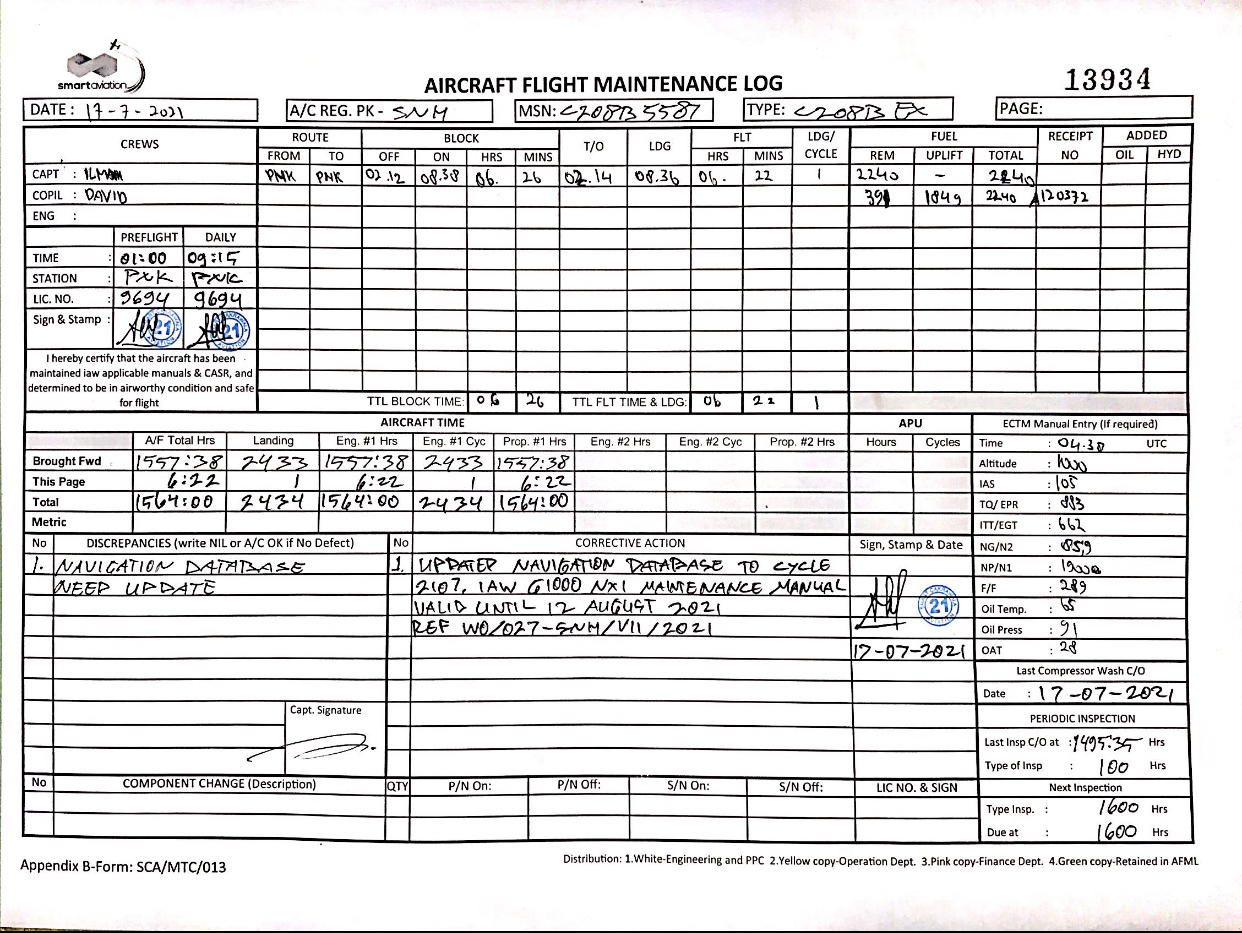 smartaviation
AIRCRAFT FLIGHT MAINTENANCE LOG
13934
DATE: 17-7-2021
A/C REG. PK - SNM
MSN: C208B5587
TYPE: C208B EX
PAGE:
CREWS ROUTE BLOCK T/O LDG FLT LDG/ CYCLE FUEL RECEIPT NO ADDED
FROM TO OFF ON HRS MINS HRS MINS REM UPLIFT TOTAL OIL HYD
CAPT : ILMAN PNK PNK 02.12 08.38 06. 26 02.14 08.36 06. 22 1 2240 - 2240
COPIL : DAVID 391 1849 2240 A120372
ENG :
PREFLIGHT DAILY
TIME : 01:00 09:15
STATION :
LIC. NO. : 9694 9694
Sign & Stamp : 21 21
I hereby certify that the aircraft has been
maintained iaw applicable manuals & CASR, and
determined to be in airworthy condition and safe
for flight
TTL BLOCK TIME: 06 26 TTL FLT TIME & LDG: 06 22 1
AIRCRAFT TIME APU
A/F Total Hrs Landing Eng. #1 Hrs Eng. #1 Cyc Prop. #1 Hrs Eng. #2 Hrs Eng. #2 Cyc Prop. #2 Hrs Hours Cycles
Brought Fwd 1557:38 2433 1557:38 2433 1557:38
This Page 6:22 1 6:22 1 6:22
Total 1564:00 2434 1564:00 2434 1564:00
Metric
ECTM Manual Entry (If required)
Time : 04.38 UTC
Altitude :
IAS : 105
TQ/ EPR :
ITT/EGT : 662
NG/N2 : 85,9
NP/N1 :
F/F : 289
Oil Temp. : 65
Oil Press : 91
OAT : 28
No DISCREPANCIES (write NIL or A/C OK if No Defect) No CORRECTIVE ACTION Sign, Stamp & Date
1. NAVIGATION DATABASE 1. UPDATED NAVIGATION DATABASE TO CYCLE
NEED UPDATE 2107, IAW G1000 NXI MAINTENANCE MANUAL
VALID UNTIL 12 AUGUST 2021
REF WO/027-SNM/VII/2021
21
17-07-2021
Capt. Signature
Last Compressor Wash C/O
Date : 17-07-2021
PERIODIC INSPECTION
Last Insp C/O at : 1495:35 Hrs
Type of Insp : 100 Hrs
Next Inspection
Type Insp. : 1600 Hrs
Due at : 1600 Hrs
No COMPONENT CHANGE (Description) QTY P/N On: P/N Off: S/N On: S/N Off: LIC NO. & SIGN
Appendix B-Form: SCA/MTC/013
Distribution: 1.White-Engineering and PPC 2.Yellow copy-Operation Dept. 3.Pink copy-Finance Dept. 4.Green copy-Retained in AFML